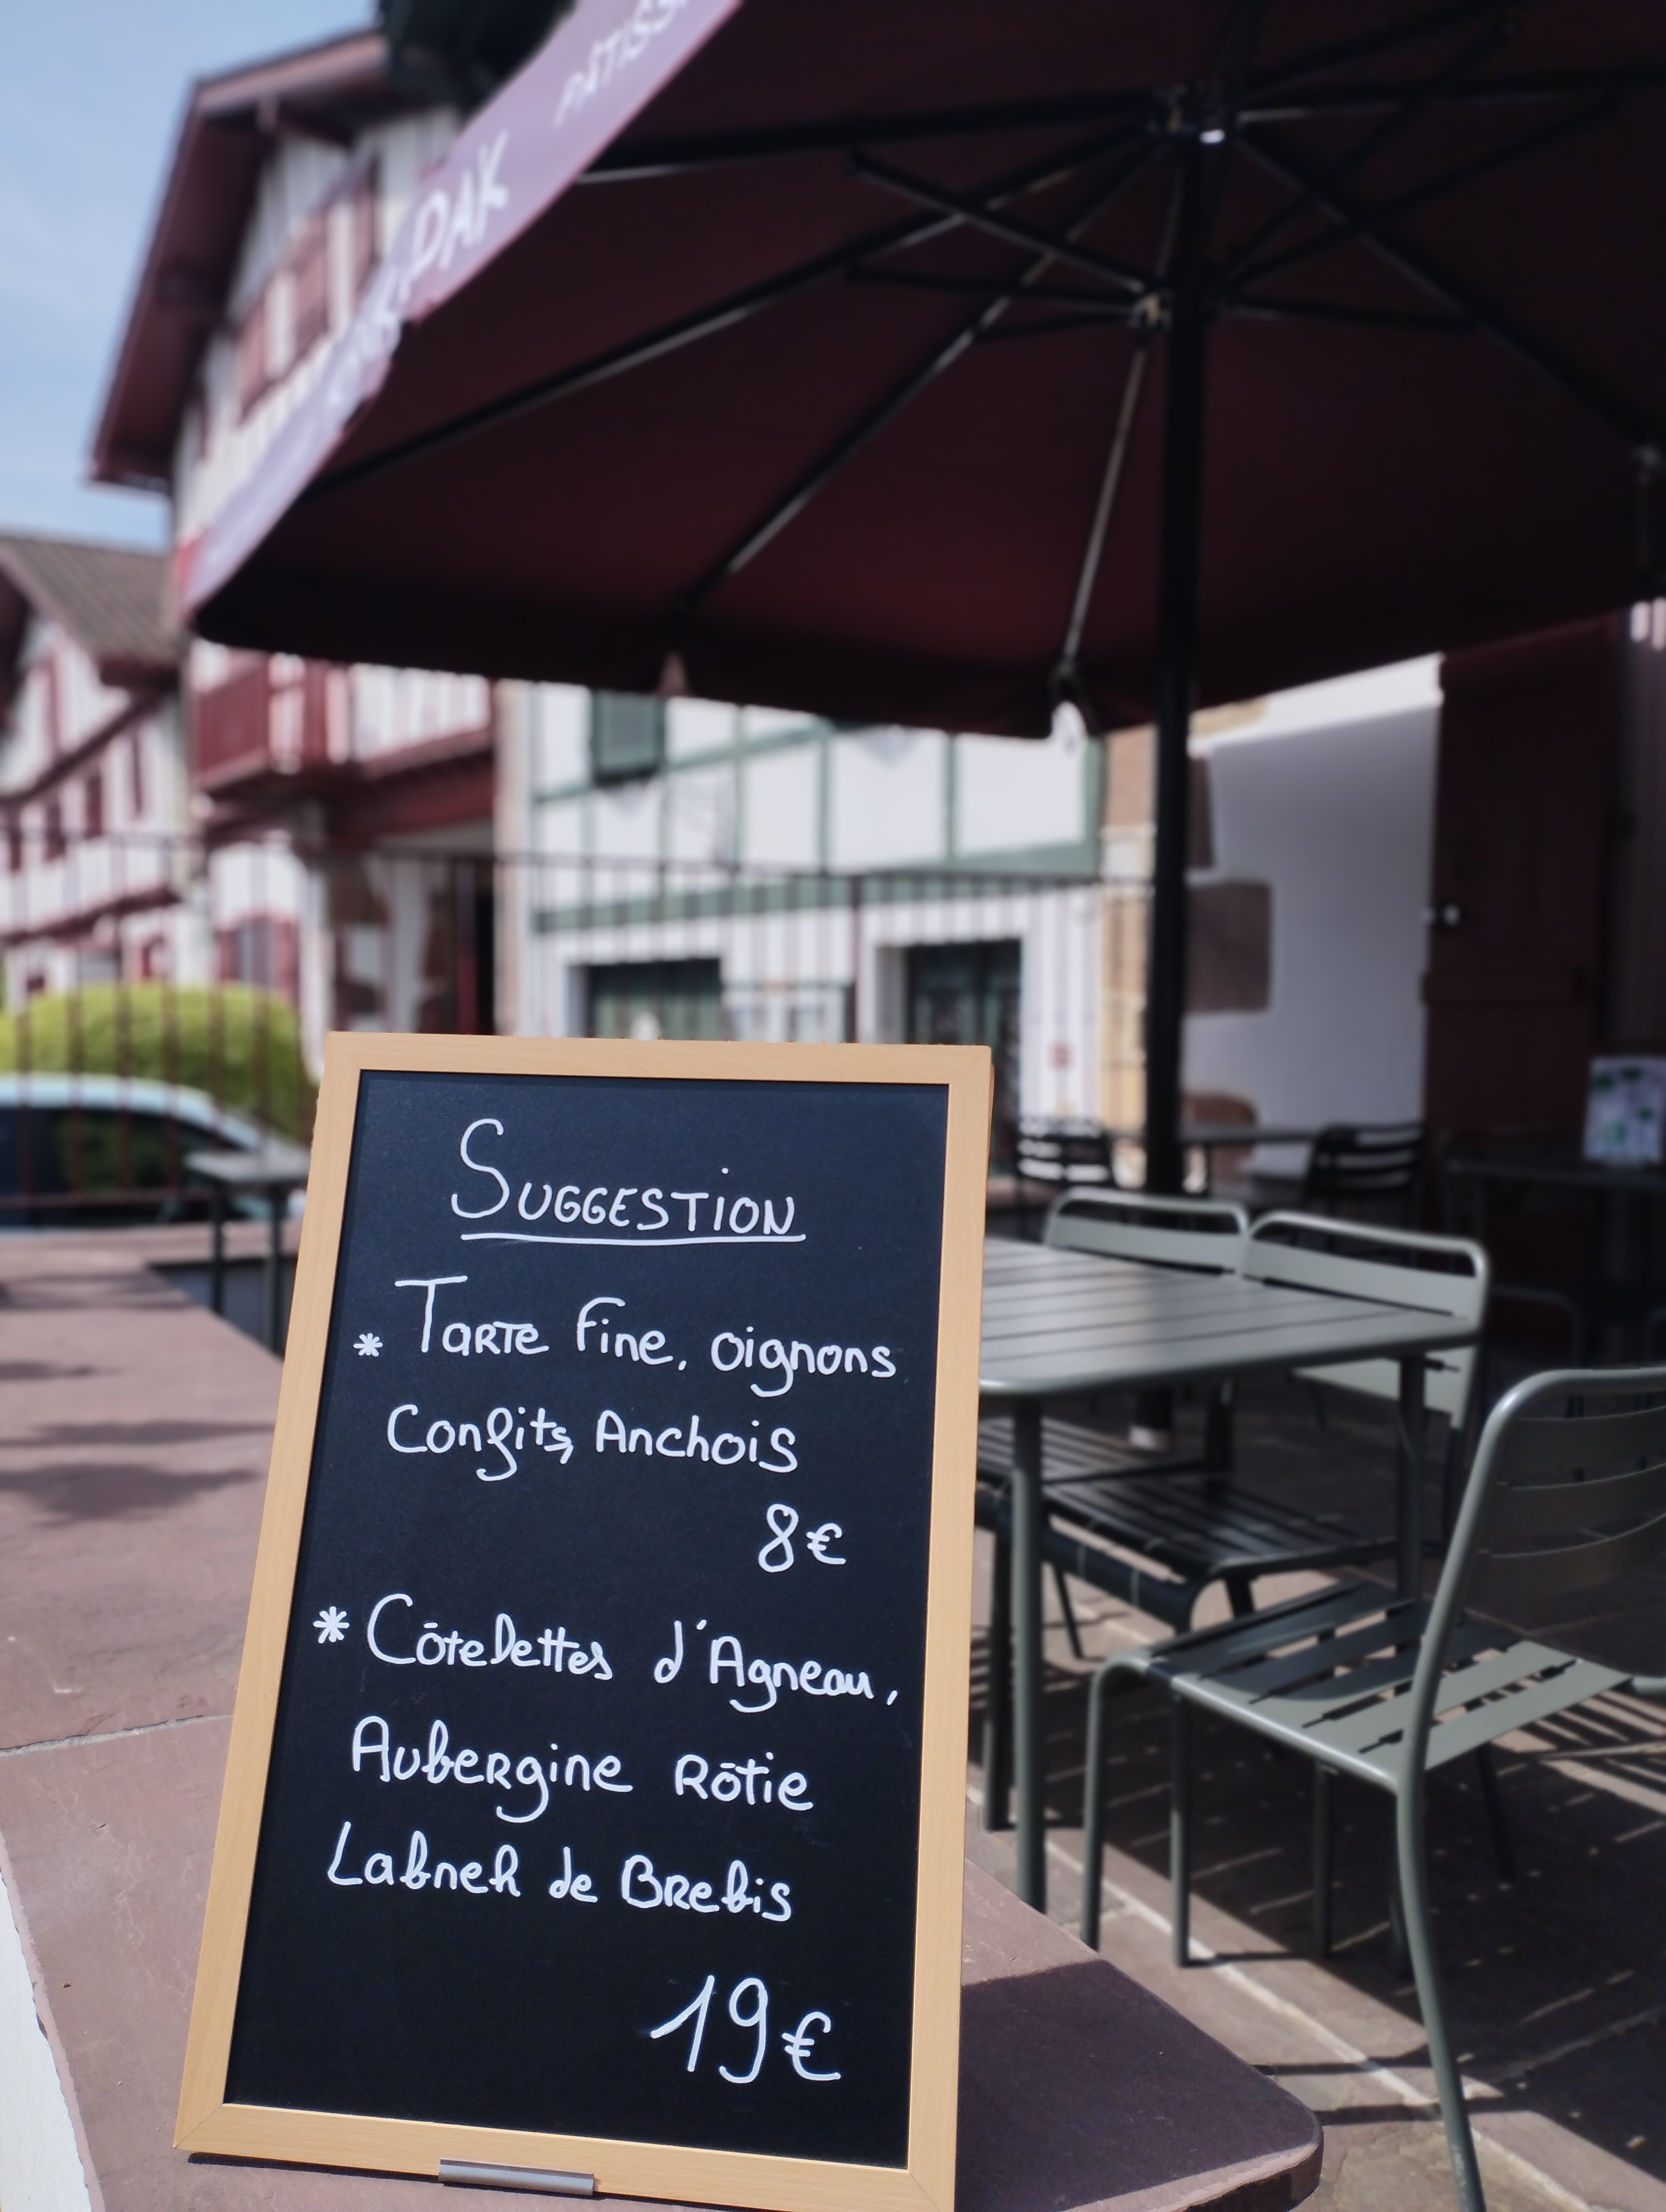 PÂTISS
PAK
SUGGESTION
* TARTE Fine, oignons
Confits, Anchois
8€
* CōteLettes d'Agneau,
AubeRgine Rōtie
Labneh de BRebis
19€